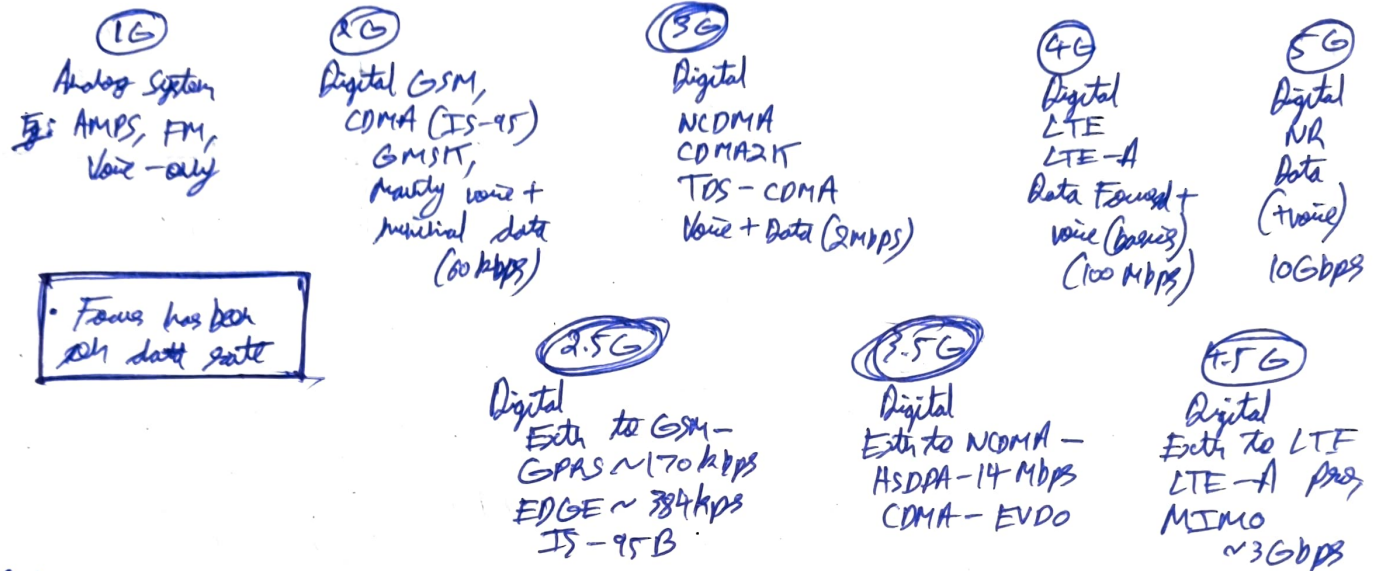 1G
Analog System
Eg: AMPS, FM,
Voice-only
2G
Digital GSM,
CDMA (IS-95)
GMSK,
Mainly voice +
minimal data
(60 kbps)
3G
Digital
WCDMA
CDMA2K
TDS-CDMA
Voice + Data (2Mbps)
4G
Digital
LTE
LTE-A
Data Focused +
voice (basics)
(100 Mbps)
5G
Digital
NR
Data
(+voice)
10Gbps
• Focus has been
on data rate
2.5G
Digital
Extn to GSM-
GPRS ~170 kbps
EDGE ~ 384kps
IS-95B
3.5G
Digital
Extn to WCDMA -
HSDPA-14 Mbps
CDMA-EVDO
4.5G
Digital
Extn to LTE
LTE-A Pro,
MIMO
~3Gbps